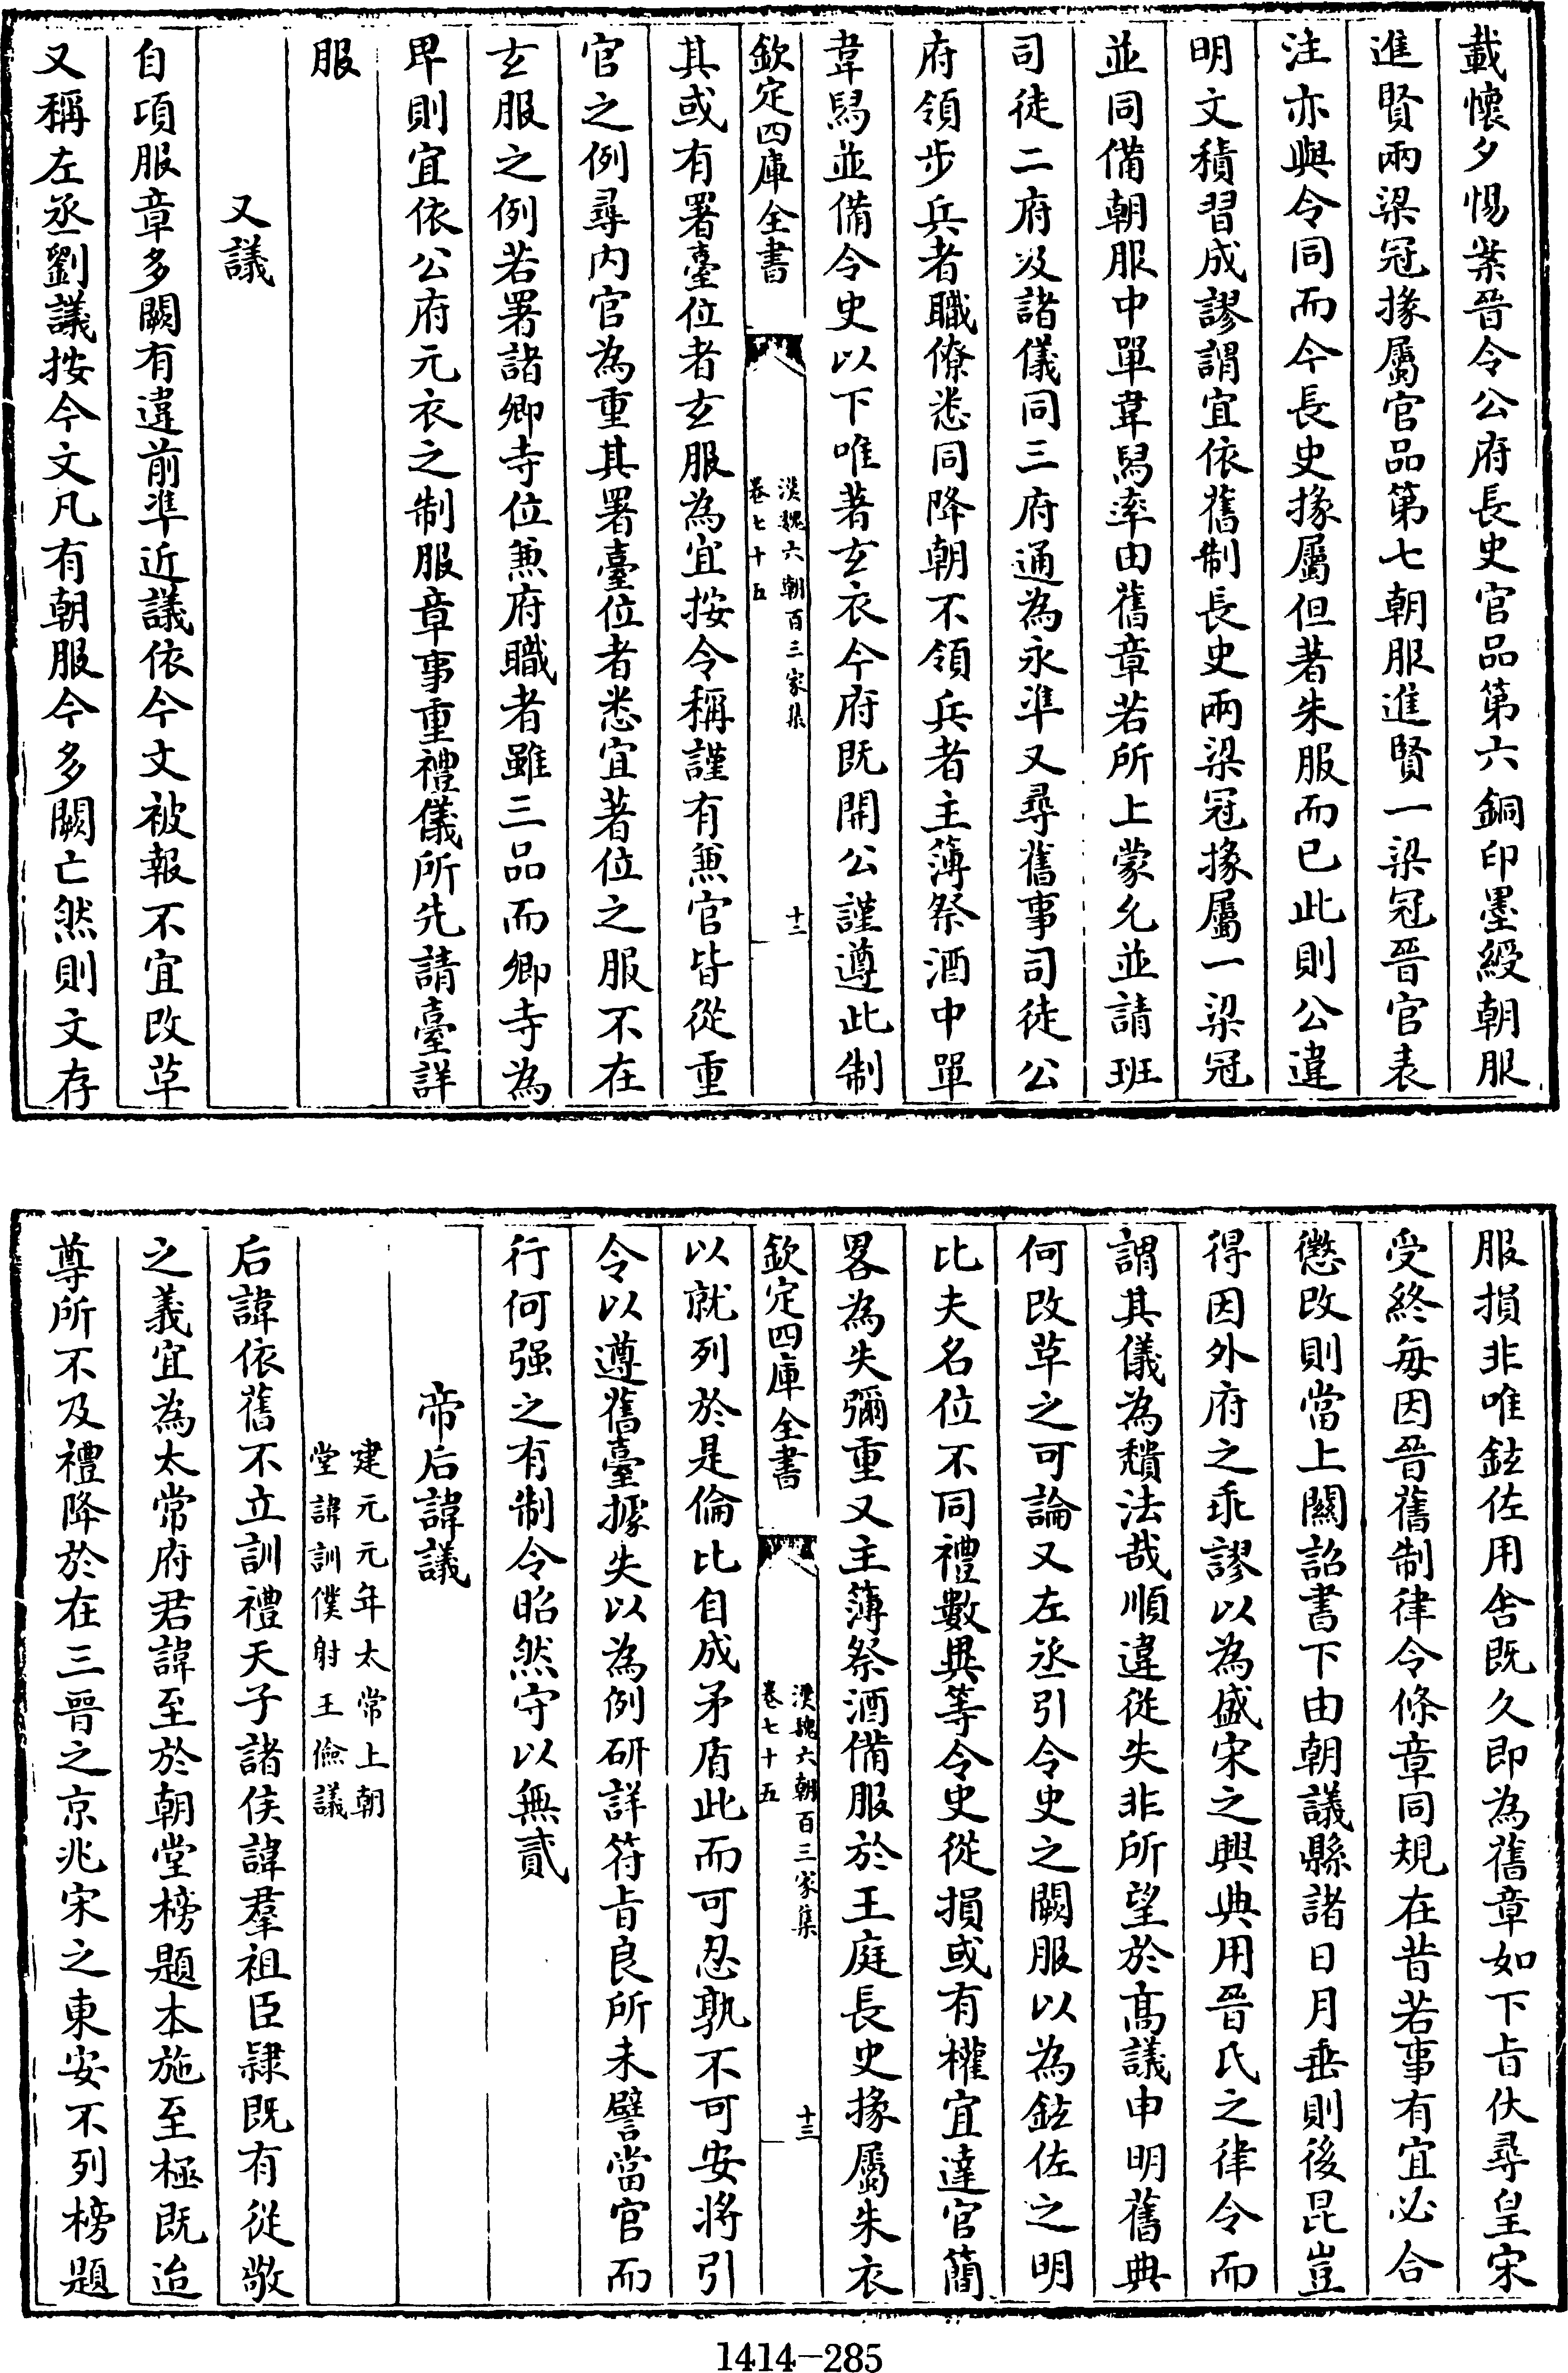 載懷夕惕案晉令公府長史官品第六銅印墨綬朝服
進賢兩梁冠掾屬官品第七朝服進賢一梁冠晉官表
注亦與令同而今長史掾屬但著朱服而已此則公違
明文積習成謬謂宜依舊制長史兩梁冠掾屬一梁冠
並同備朝服中單韋舄率由舊章若所上蒙允並請班
司徒二府及諸儀同三府通為永準又尋舊事司徒公
府領步兵者職僚悉同降朝不領兵者主簿祭酒中單
韋舄並備令史以下唯著玄衣今府既開公謹遵此制
欽定四庫全書
漢魏六朝百三家集
卷七十五
十二
其或有署臺位者玄服為宜按令稱謹有兼官皆從重
官之例尋内官為重其署臺位者悉宜著位之服不在
玄服之例若署諸卿寺位兼府職者雖三品而卿寺為
卑則宜依公府元衣之制服章事重禮儀所先請臺詳
服
又議
自頃服章多闕有違前準近議依令文被報不宜改草
又稱左丞劉議按令文凡有朝服今多闕亡然則文存
服損非唯鉉佐用舍既久即為舊章如下旨伏尋皇宋
受終每因晉舊制律令條章同規在昔若事有宜必合
懲改則當上關詔書下由朝議縣諸日月垂則後昆豈
得因外府之乖謬以為盛宋之興典用晉氏之律令而
謂其儀為穨法哉順違從失非所望於髙議申明舊典
何改草之可論又左丞引令史之闕服以為鉉佐之明
比夫名位不同禮數異等令史從損或有權宜達官簡
畧為失彌重又主薄祭酒備服於王庭長史掾屬朱衣
欽定四庫全書
漢魏六朝百三家集
卷七十五
十三
以就列於是倫比自成矛盾此而可忍孰不可安將引
令以遵舊臺據失以為例研詳符旨良所未譬當官而
行何强之有制令昭然守以無貳
帝后諱議
建元元年太常上朝
堂諱訓僕射王儉議
后諱依舊不立訓禮天子諸侯諱羣祖臣隷既有從敬
之義宜為太常府君諱至於朝堂榜題本施至極既迨
尊所不及禮降於在三晉之京兆宋之東安不列榜題
1414-285